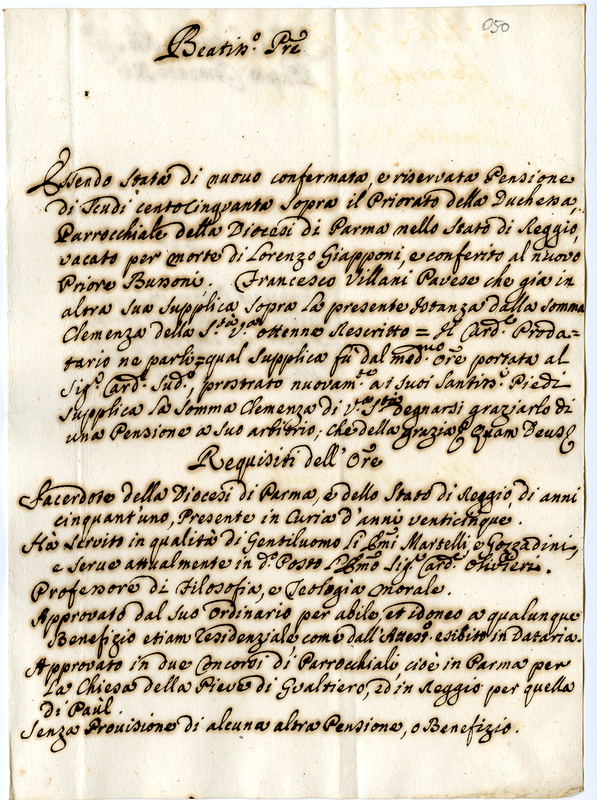 050
Beatiss.º Pre
Essendo stata di nuovo confermata, e riservata Pensione
di Scudi centocinquanta sopra il Priorato della Duchessa,
Parrocchiale della Diocesi di Parma nello Stato di Reggio,
vacato per morte di Lorenzo Giapponi, e conferito al nuovo
Priore Bussoni. Francesco Villani Pavese che già in
altra sua supplica sopra la presente Istanza dalla somma
Clemenza della S.tà V.ra ottenne Rescritto = Il Card.le Proda-
tario ne parli = qual supplica fù dal med.mo Ore portata al
Sig.r Card.l Sud.º, prostrato nuovam.te a i suoi Santiss.i Piedi
supplica la somma Clemenza di V.ra S.tà degnarsi graziarlo di
una Pensione a suo arbitrio; che della grazia &c Quam Deus &c
Requisiti dell'Ore
Sacerdote della Diocesi di Parma, e dello Stato di Reggio, di anni
cinquant'uno, Presente in Curia d'anni venticinque.
Hà servito in qualità di Gentiluomo li Emi Martelli, e Gozzadini,
e serve attualmente in d.º Posto l'Emo Sig.r Card.le Olivieri.
Professore di Filosofia, e Teologia morale.
Approvato dal suo Ordinario per abile, et idoneo a qualunque
Benefizio etiam residenziale, come dall'Attest.º esibito in Dataria.
Approvato in due Concorsi di Parrocchiali cioè in Parma per
la Chiesa della Pieve di Gualtiero, ed in Reggio per quella
di Paùl.
Senza Provisione di alcuna altra Pensione, o Benefizio.